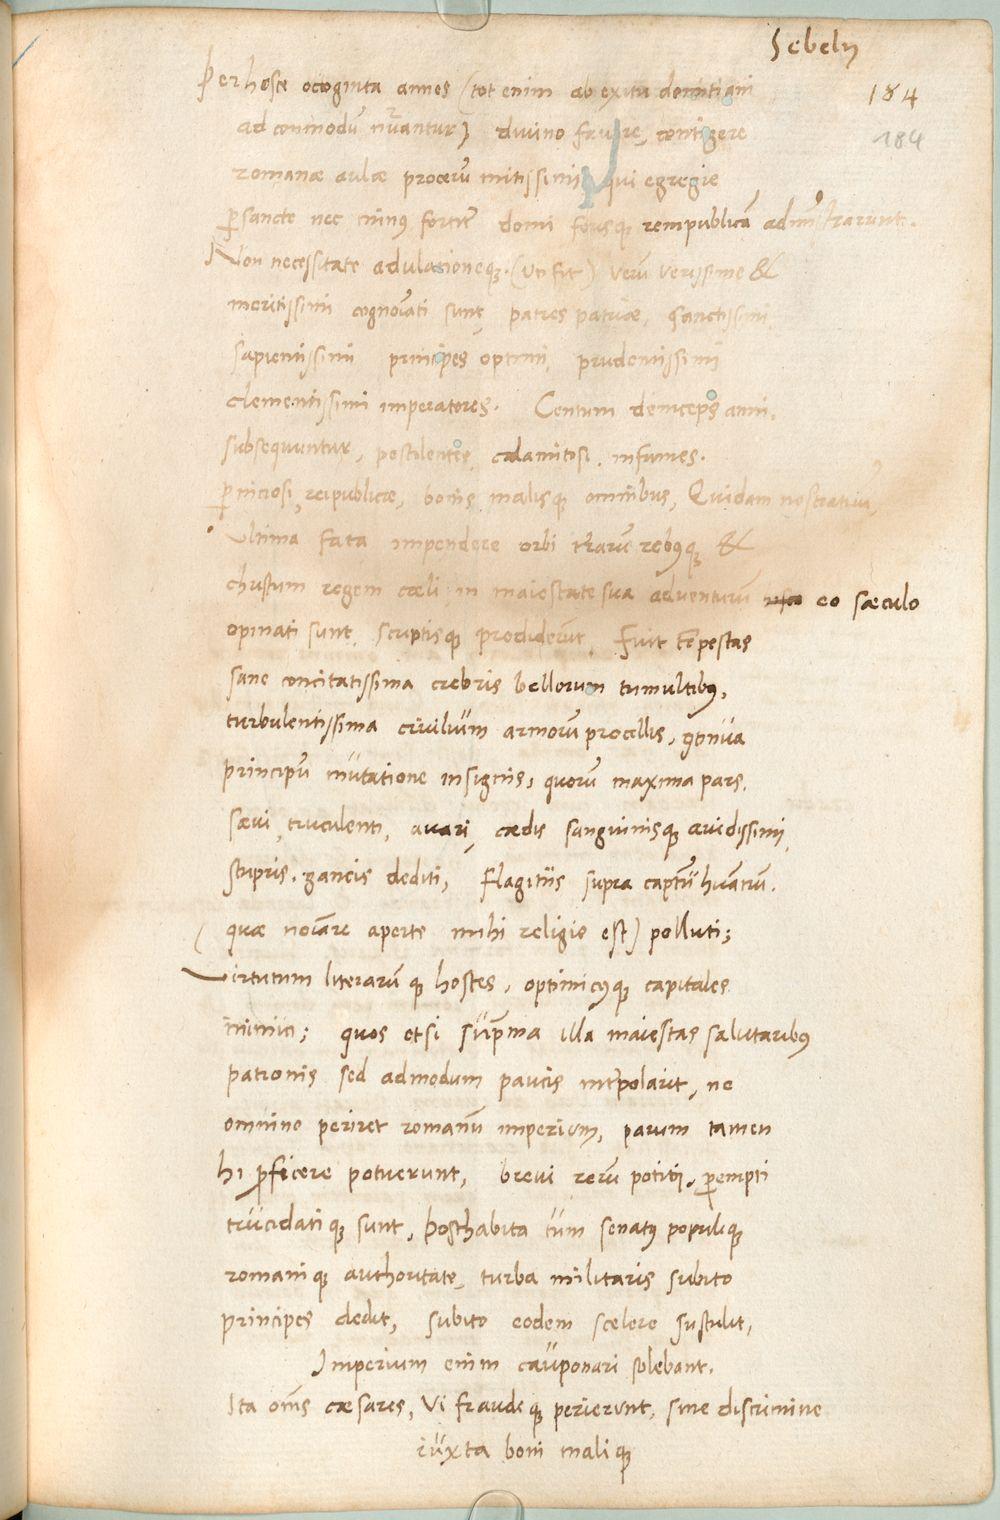 Sebely
184
184
Per hosce octoginta annos (tot enim ab exitu domitiani
ad commodū nūantur) divino favore, contigere
romanæ aulæ procerū mitissimi qui egregie
p̱sancte nec minꝰ fortit̄ domi forisqȝ rempublicā admīstrarunt.
Non necessitate adulationeqȝ. (Ut fit) verū verissime &
meritissimi cognoīati sunt, patres patriæ, sanctissimi,
sapientissimi principes optimi, prudentissimi
clementissimi imperatores. Centum deinceps anni,
subsequuntur, pestilentes, calamitosi, infames.
p̱niciosi, reipublicæ, bonis malisqȝ omnibus, Quidam nostratiū,
Ultima fata impendere orbi tr̄arū rebꝰqȝ &
christum regem cæli in maiestate sua adventurū eo sæculo
opinati sunt, scriptisqȝ prodiderūt. Fuit tēpestas
sane concitatissima crebris bellorum tumultibꝰ,
turbulentissima civilium armorū procellis, ꝯtinua
principū mutatione insignis, quorū maxima pars,
sævi, truculenti, avari, cædis sanguinisqȝ avidissimi,
stupris. ganeis dediti, flagitiis supra captū hūanū.
(quæ noīare aperte mihi religio est) polluti;
Virtutum literarūqȝ hostes, optimicꝰqȝ capitales
inimici; quos etsi sup̄ma illa maiestas salutaribꝰ
patronis sed admodum paucis int̄polarit, ne
omnino periret romanū imperium, parum tamen
hi ꝓficere potuerunt, brevi rerū potiti, p̱empti
trucidatiqȝ sunt, Posthabita tum senatꝰ populiqȝ
romaniqȝ authoritate, turba militaris subito
principes dedit, subito eodem scelere sustulit,
Imperium enim cauponari solebant.
Ita oēs cæsares, Vi fraudeqȝ perierunt, sine discrimine
iuxta boni maliqȝ